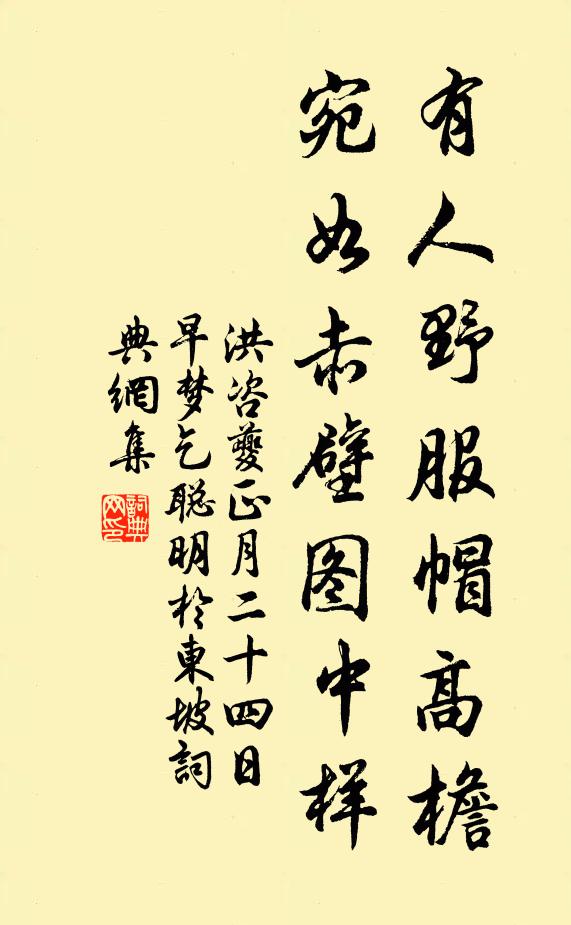 有人野服帽高檐
宛如赤壁图中样
洪咨夔正月二十四日
早梦乞聪明於東坡詞
典網集
詞典
网印